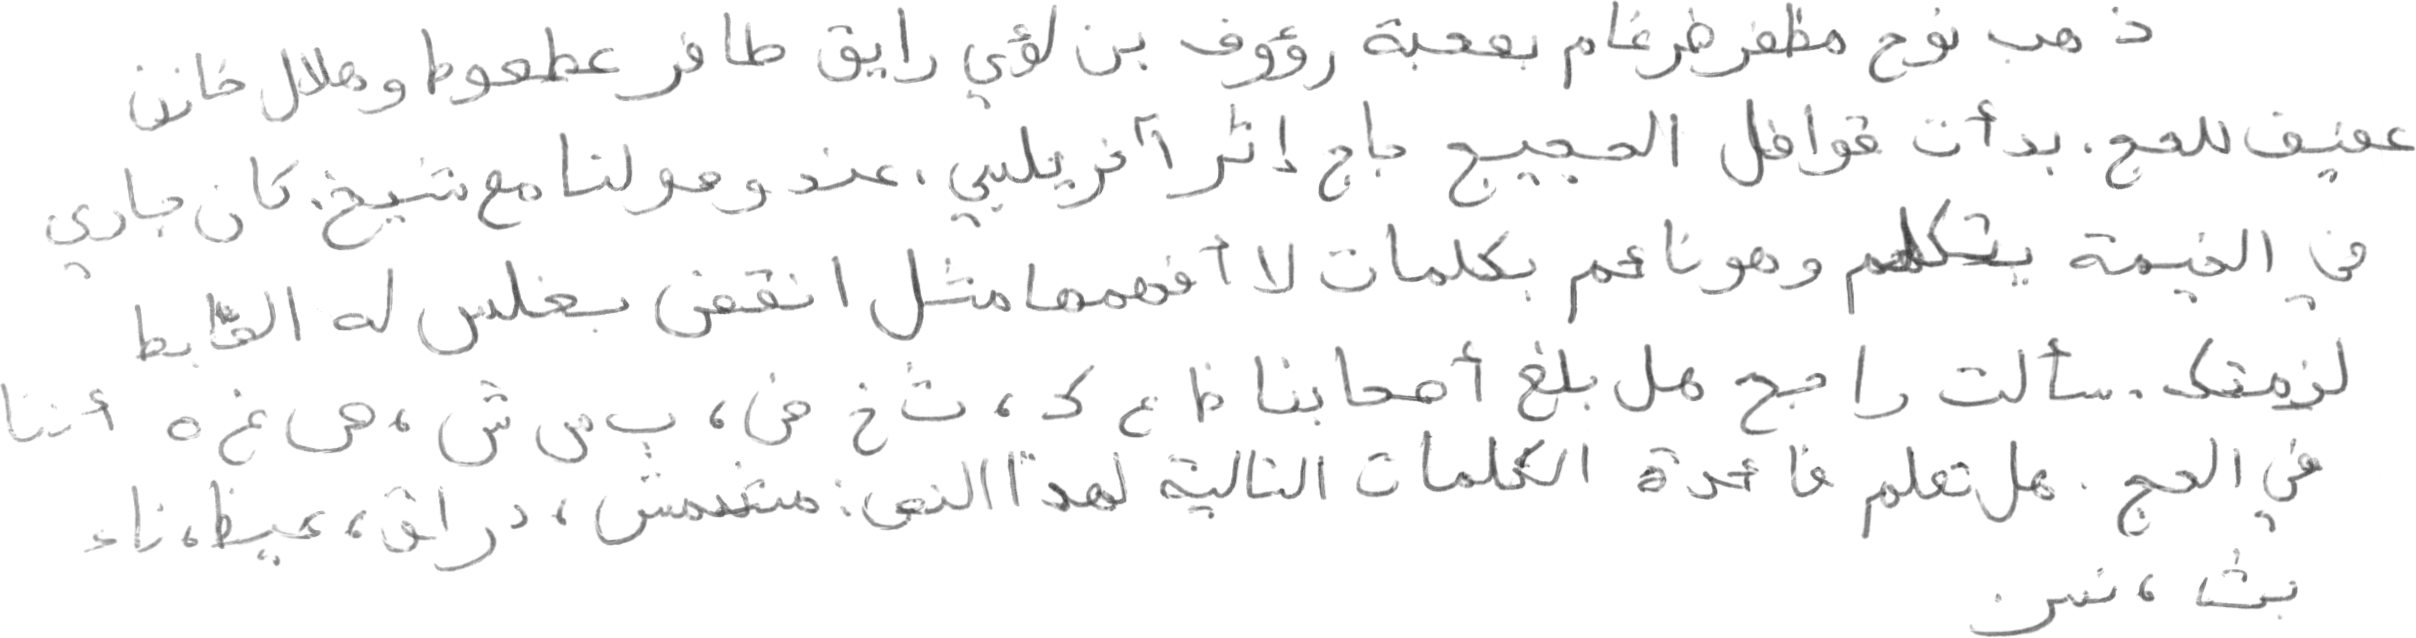 ذهب نوح مظفر ضرغام بصحبة رؤوف بن لؤي رايق ظافر عطعوط وهلال خازن
عفيف للحج. بدأت قوافل الحجيج جاج إثر آخر يلبي. عند وصولنا مع شيخ. كان جاري
في الخيمة يتكلم وهو نائم بكلمات لا أفهمها مثل انقض بغلس له الضابط
لزمتك. سألت راجح هل بلغ أصحابنا ظ ع ك، ث خ ض، ب س ش، ص غ ه أننا
في الحج. هل تعلم فائدة الكلمات التالية لهذا النص: ، دراق، غيظ، ناء
بث،